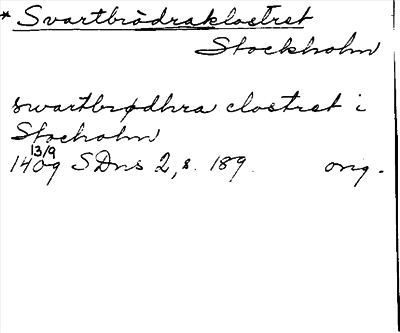 * Svartbrödraklostret
Stockholm
swartbrødhra clostret i
Stocholm
13/9
1409 SDns 2, s. 189. orig.